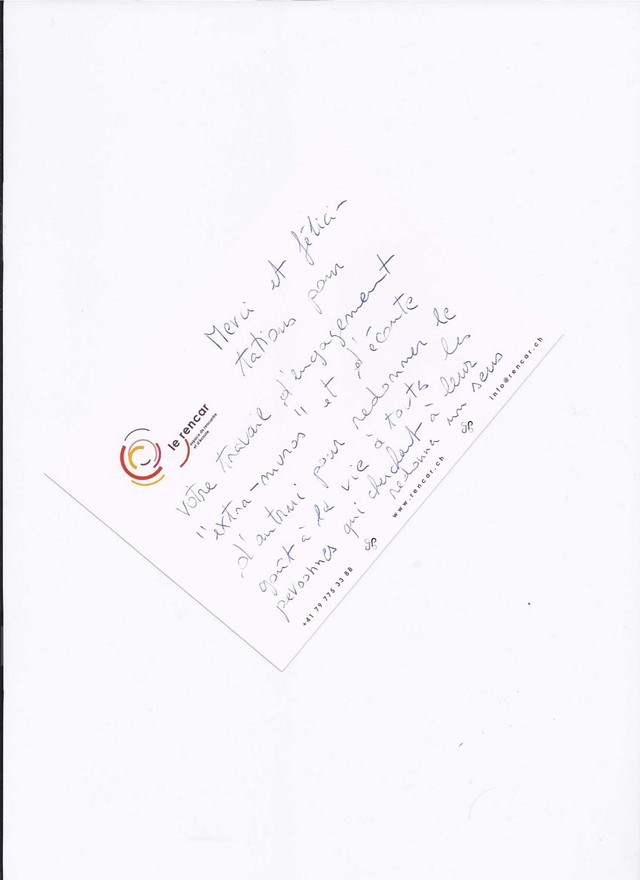 le rencar
espace de rencontre
et d'écoute
Merci et félici-
tations pour
votre travail d'engagement
"extra-muros" et d'écoute
d'autrui pour redonner le
goût à la vie à touts les
personnes qui cherchent à leur
redonna un sens
+41 79 775 33 88
www.rencar.ch
info@rencar.ch